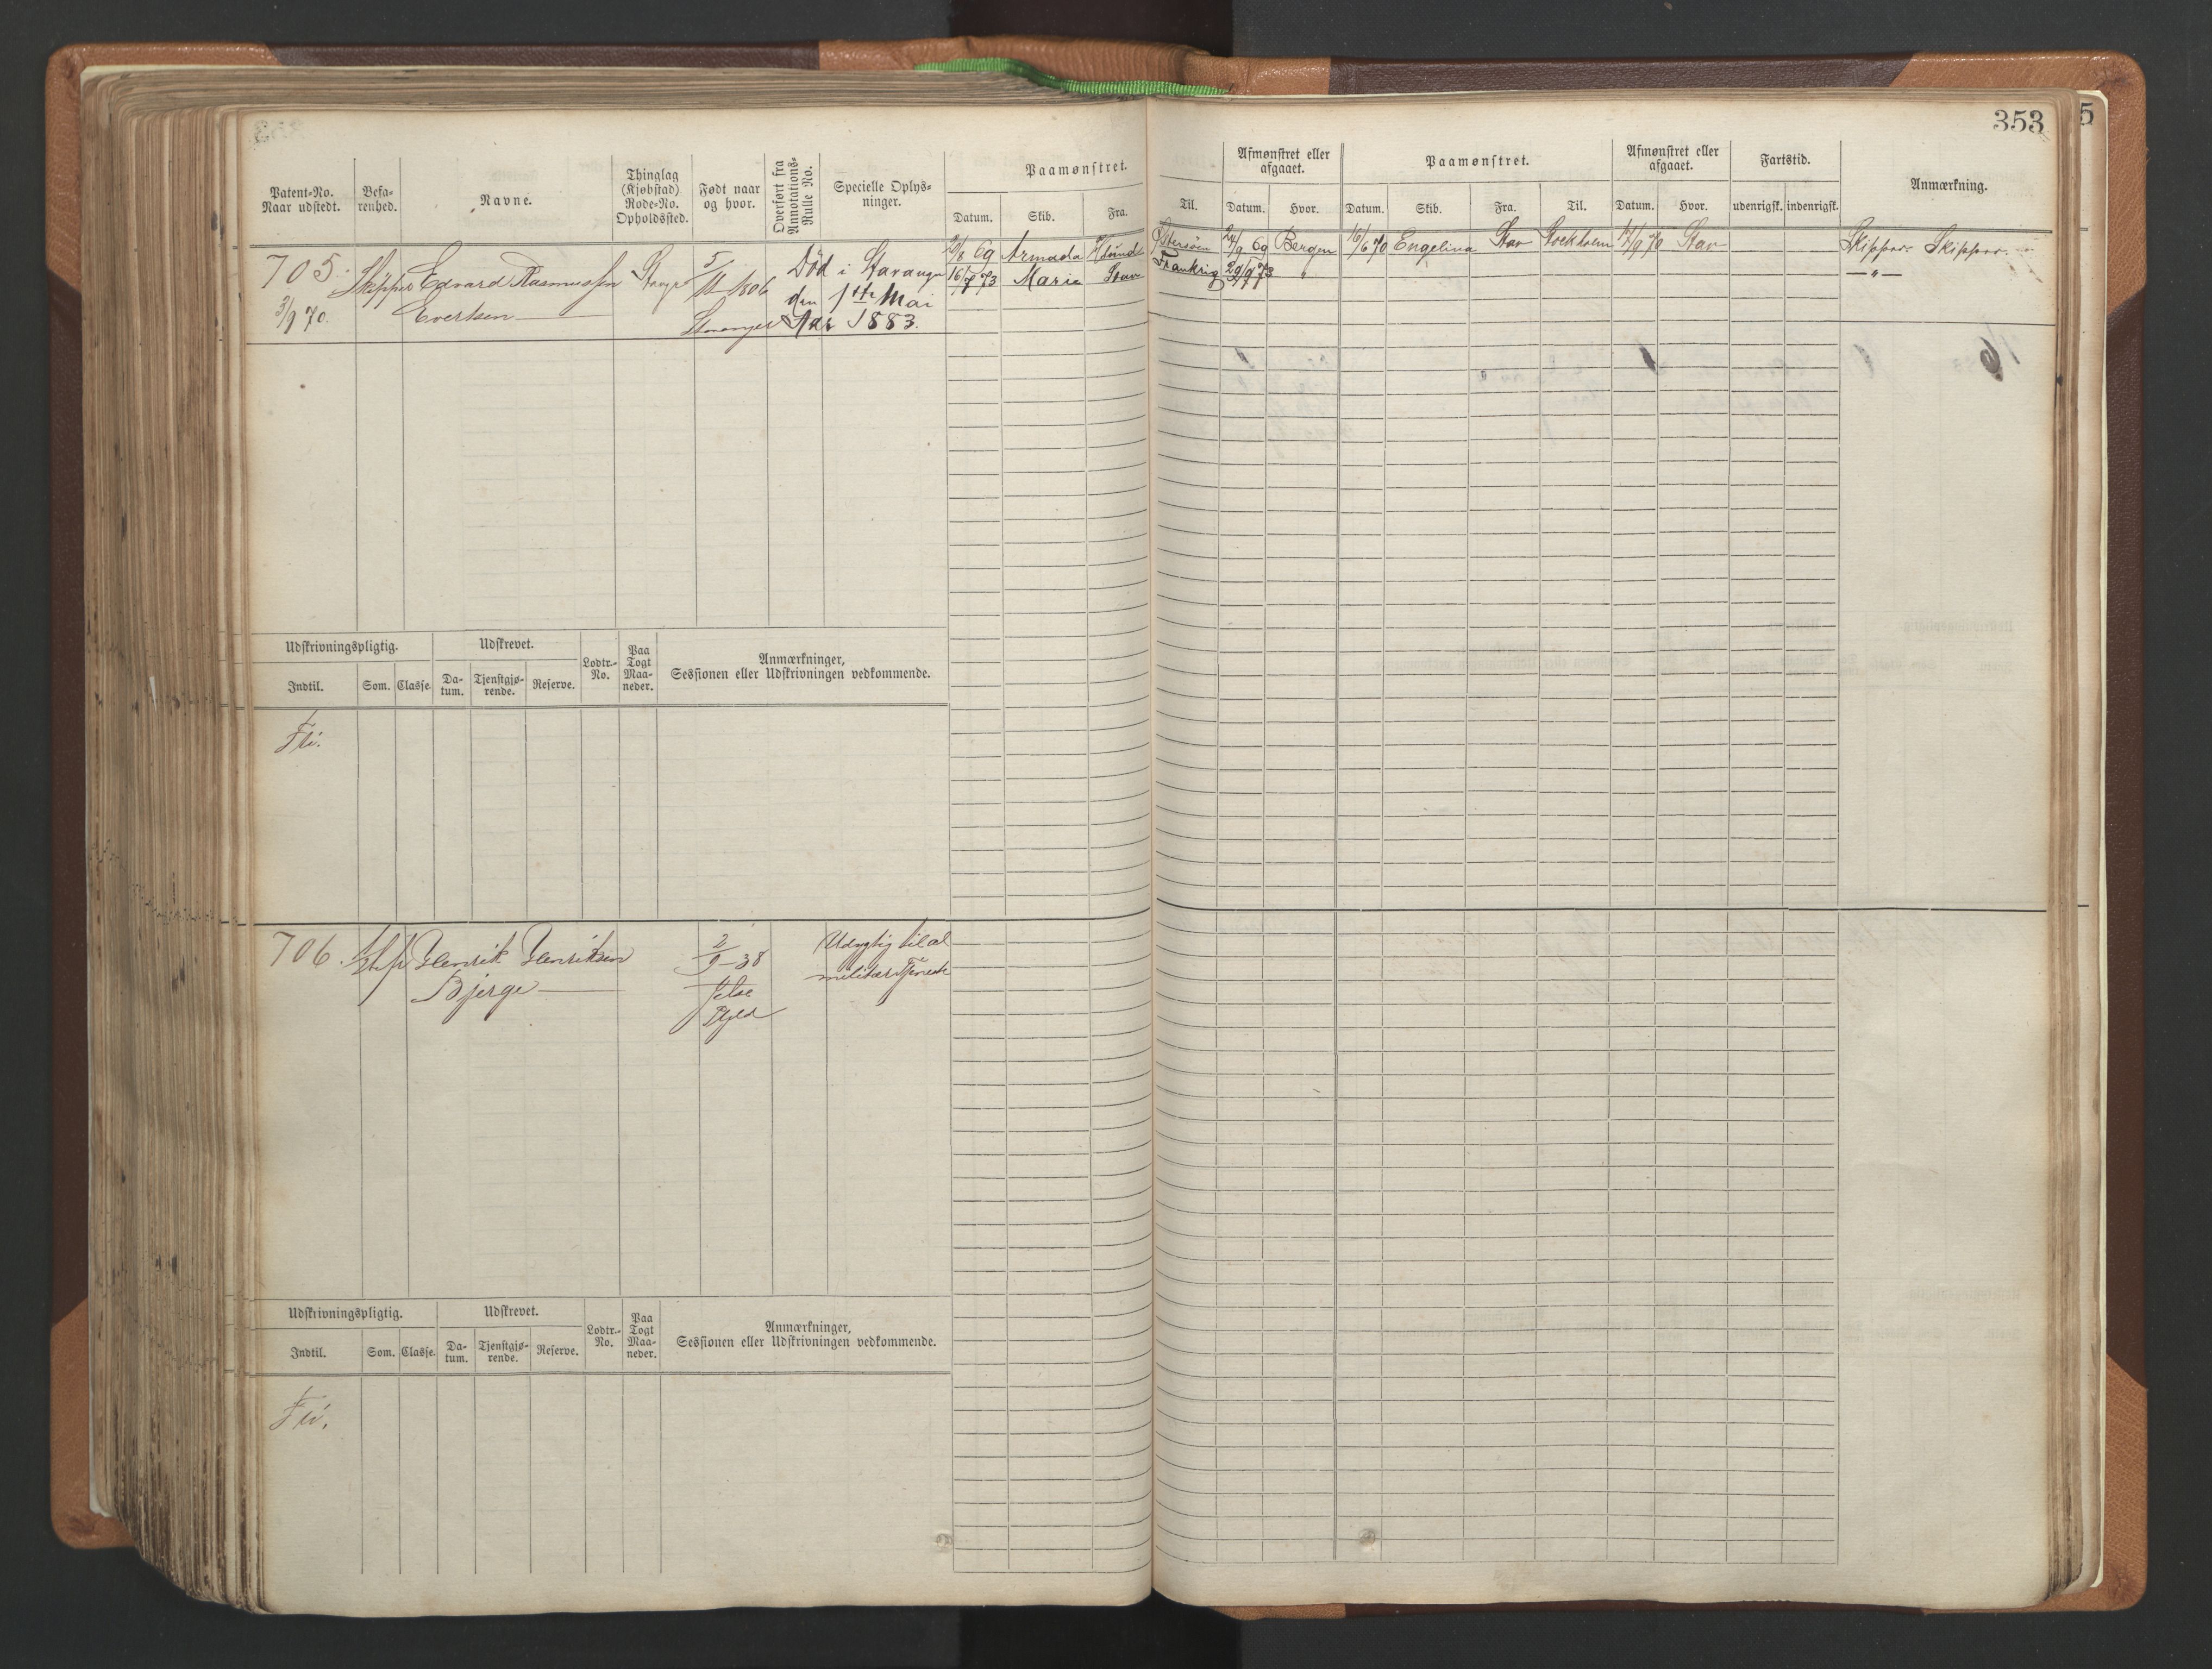 353
5
Patent=No. Naar udstedt.
Befa=renhed.
Navne.
Thinglag (Kjøbstad) Rode=No. Opholdssted.
Født naar og hvor.
Overført fra Annotations=Rulle No.
Specielle Oplys=ninger.
Paamønstret.
Datum. Skib. Fra. Til.
Afmønstret eller afgaaet.
Datum. Hvor.
Paamønstret.
Datum. Skib. Fra. Til.
Afmønstret eller afgaaet.
Datum. Hvor.
Fartstid.
udenrigsk. indenrigsk.
Anmærkning.
705. Skipper Edvard Rasmussen
Evertsen
3/9 70.
5/11 1806
Stavanger
Død i Stavanger
den 1ste Mai
Aar 1883.
Armada Østersøen 24/9 69 Bergen 16/6 70 Engelina Stav Stockholm 17/9 70 Stav Skipper Skipper
16/7 73 Maria Stav Frankrig 29/9 73 "
— " —
Udskrivningspligtig. Udskrevet. Lodtr.=No. Paa Togt Maa=neder. Anmærkninger, Sessionen eller Udskrivningen vedkommende.
Indtil. Som. Classe. Da=tum. Tjenstgjø=rende. Reserve.
Fri.
706. Henrik Henriksen
Bjerge
2/9-38
Jelse
Pgjld
Udygtig til al
militær Tjeneste
Udskrivningspligtig. Udskrevet. Lodtr.=No. Paa Togt Maa=neder. Anmærkninger, Sessionen eller Udskrivningen vedkommende.
Indtil. Som. Classe. Da=tum. Tjenstgjø=rende. Reserve.
Fri.